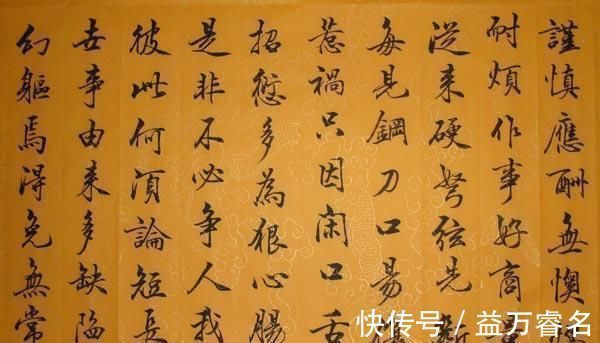 謹慎應酬無懊
耐煩作事好商
從来硬弩弦先
每見鋼刀口易
惹禍只因闲口舌
招愆多為狠心腸
是非不必争人我
彼此何須論短長
世事由来多缺陷
幻軀焉得免無常
快传号 / 益万睿名